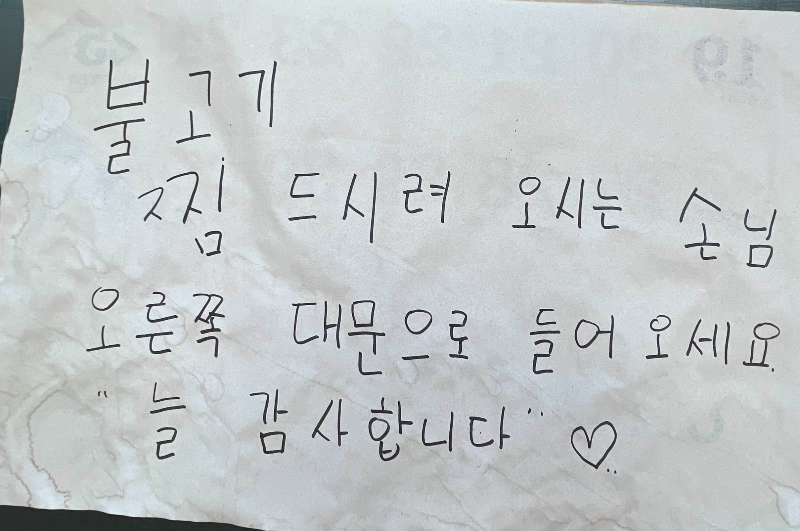 불고기
찜 드시려 오시는 손님
오른쪽 대문으로 들어 오세요
"늘 감사합니다" ♡